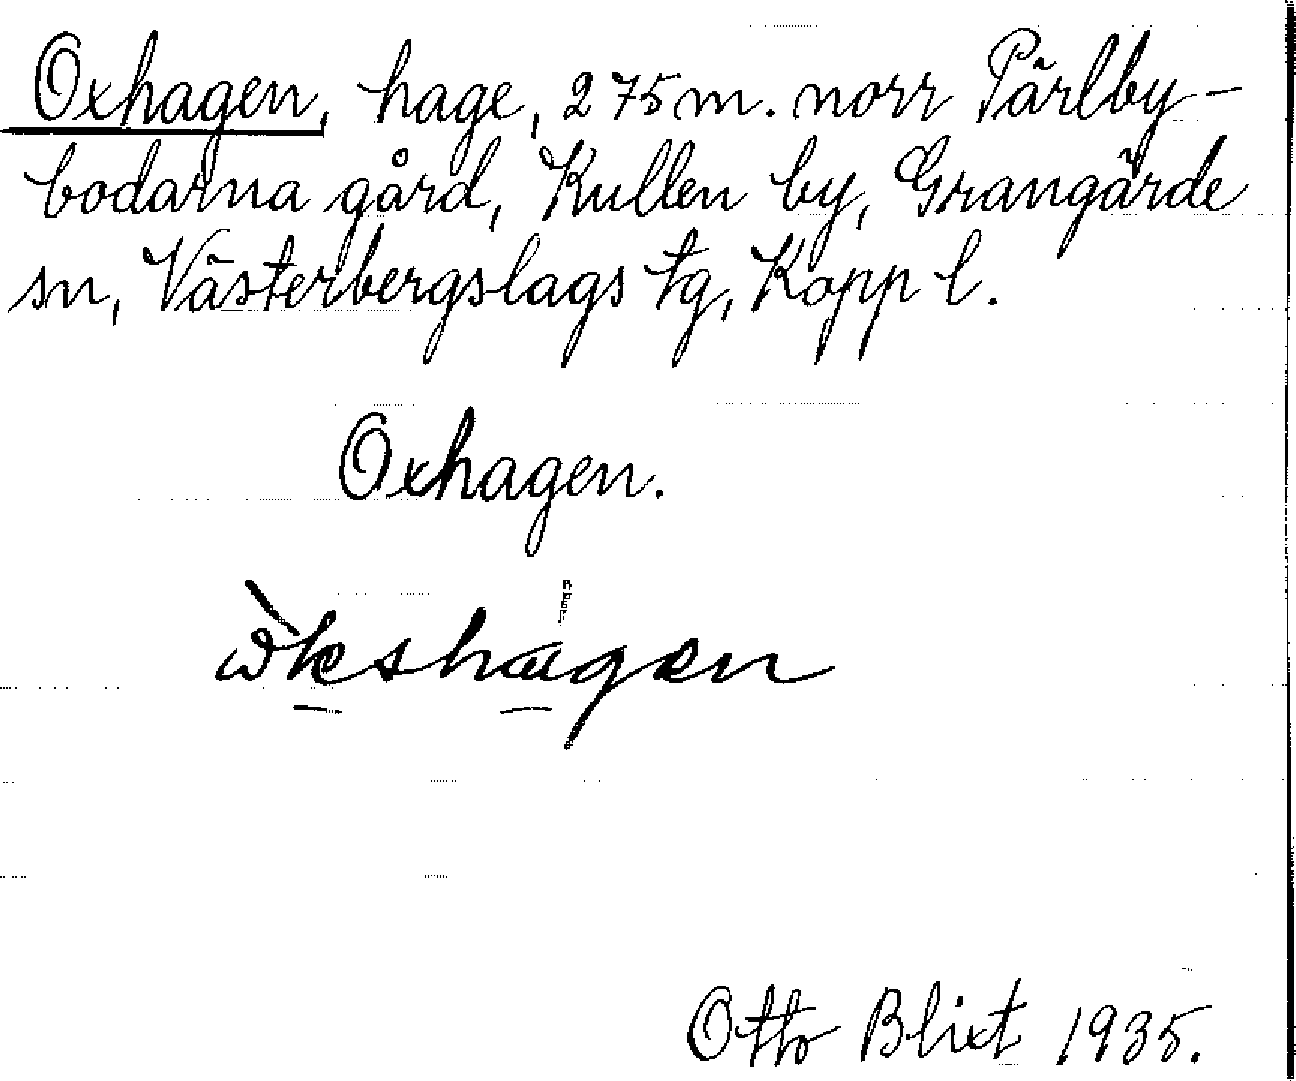 Oxhagen, hage, 275 m. norr Pärlby-
bodarna gård, Kullen by, Grangärde
sn, Västerbergslags tg, Kopp l.
Oxhagen.
Otto Blixt 1935.